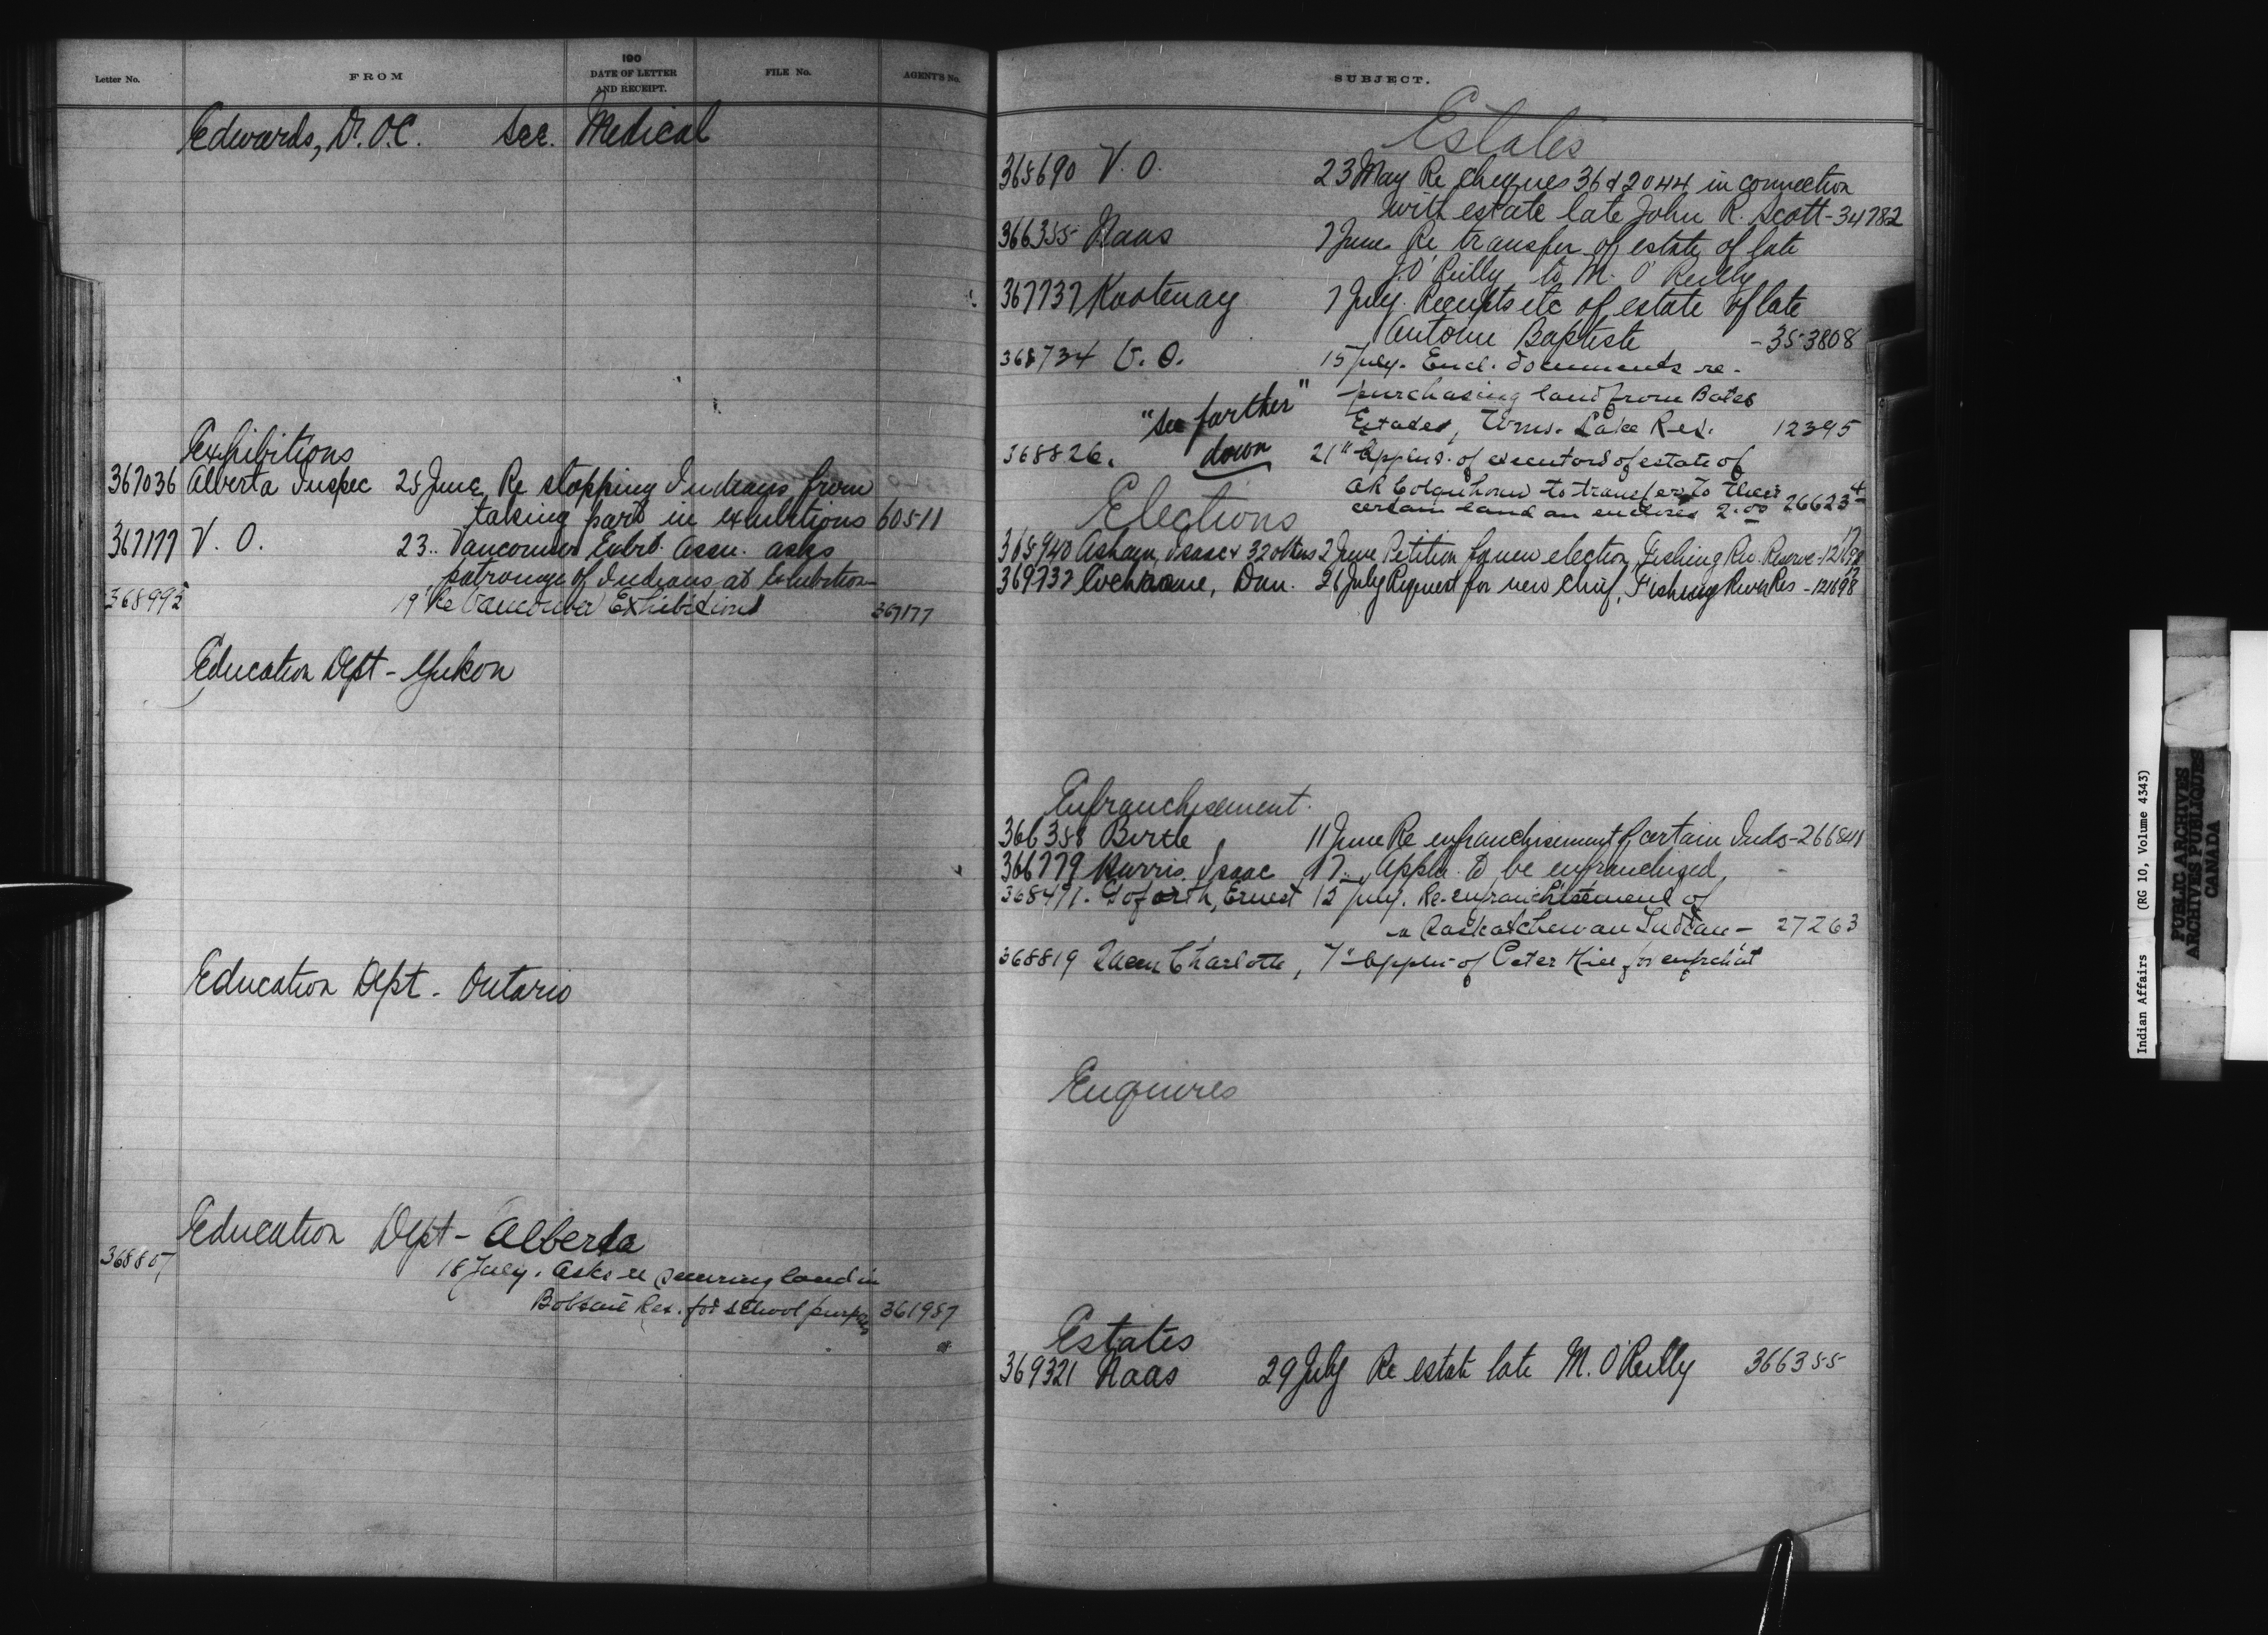 Letter No.
FROM
190
DATE OF LETTER
AND RECEIPT.
FILE No.
AGENT'S No.
Edwards, Dr. O.C. See. Medical
Exhibitions
367036 Alberta Inspec 25 June Re stopping Indians from
taking part in exhibitions 60511
367177 V. O. 23 .. Vancouver Exbt. Assn. asks
patronage of Indians at Exhibition
368992 19" Re Vancouver Exhibitions 367177
Education Dept - Yukon
Education Dept - Ontario
Education Dept - Alberta
368807 18 July. Asks re securing land in
Res. for school purposes 361987
SUBJECT.
Estates
365690 V. O. 23 May Re cheques 36 & 2044 in connection
with estate late John R. Scott - 34782
366355 Naas 7 June Re transfer of estate of late
J. O'Reilly to M. O'Reilly
367737 Kootenay 7 July. Receipts etc of estate of late
Antoine Baptiste - 353808
368734 V. O. 15 July. Encl. documents re -
purchasing land from Bates
Estates, Wms. Lake Res. 12395
"see farther"
down
368826. 21" Applns. of executors of estate of
to transfer to their
certain land an encloses 2.00 26623-4
Elections
365940 Asham, Isaac & 32 others 2 June Petition for new election, Fishing Riv. Reserve - 121698
369737 Cochrane, Dan. 26 July Request for new Chief, Fishing River Res - 121698
Enfranchisement.
366358 Birtle 11 June Re enfranchisement of certain Inds - 266841
366779 Harris, Isaac 17 .. Appln. to be enfranchised, -
368471. Goforth, Ernest 12 July. Re-enfranchisement of
a Saskatchewan Indian - 27263
368819 Queen Charlotte, 7" Appln - of Peter Hill for enfrch'at
Enquires
Estates
369321 Naas 29 July Re estate late M. O'Reilly 366355
Indian Affairs (RG 10, Volume 4343)
PUBLIC ARCHIVES
ARCHIVES PUBLIQUES
CANADA